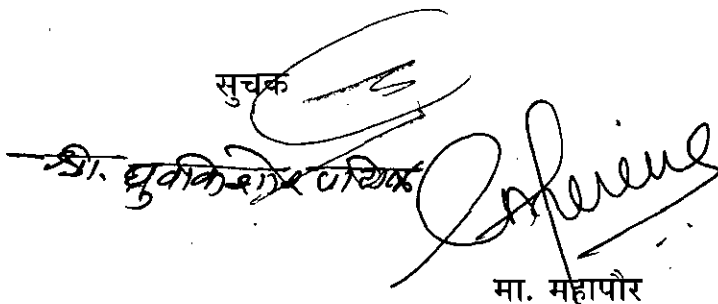 सुचक
श्री. ध्रुवकिशोर पाटील
मा. महापौर